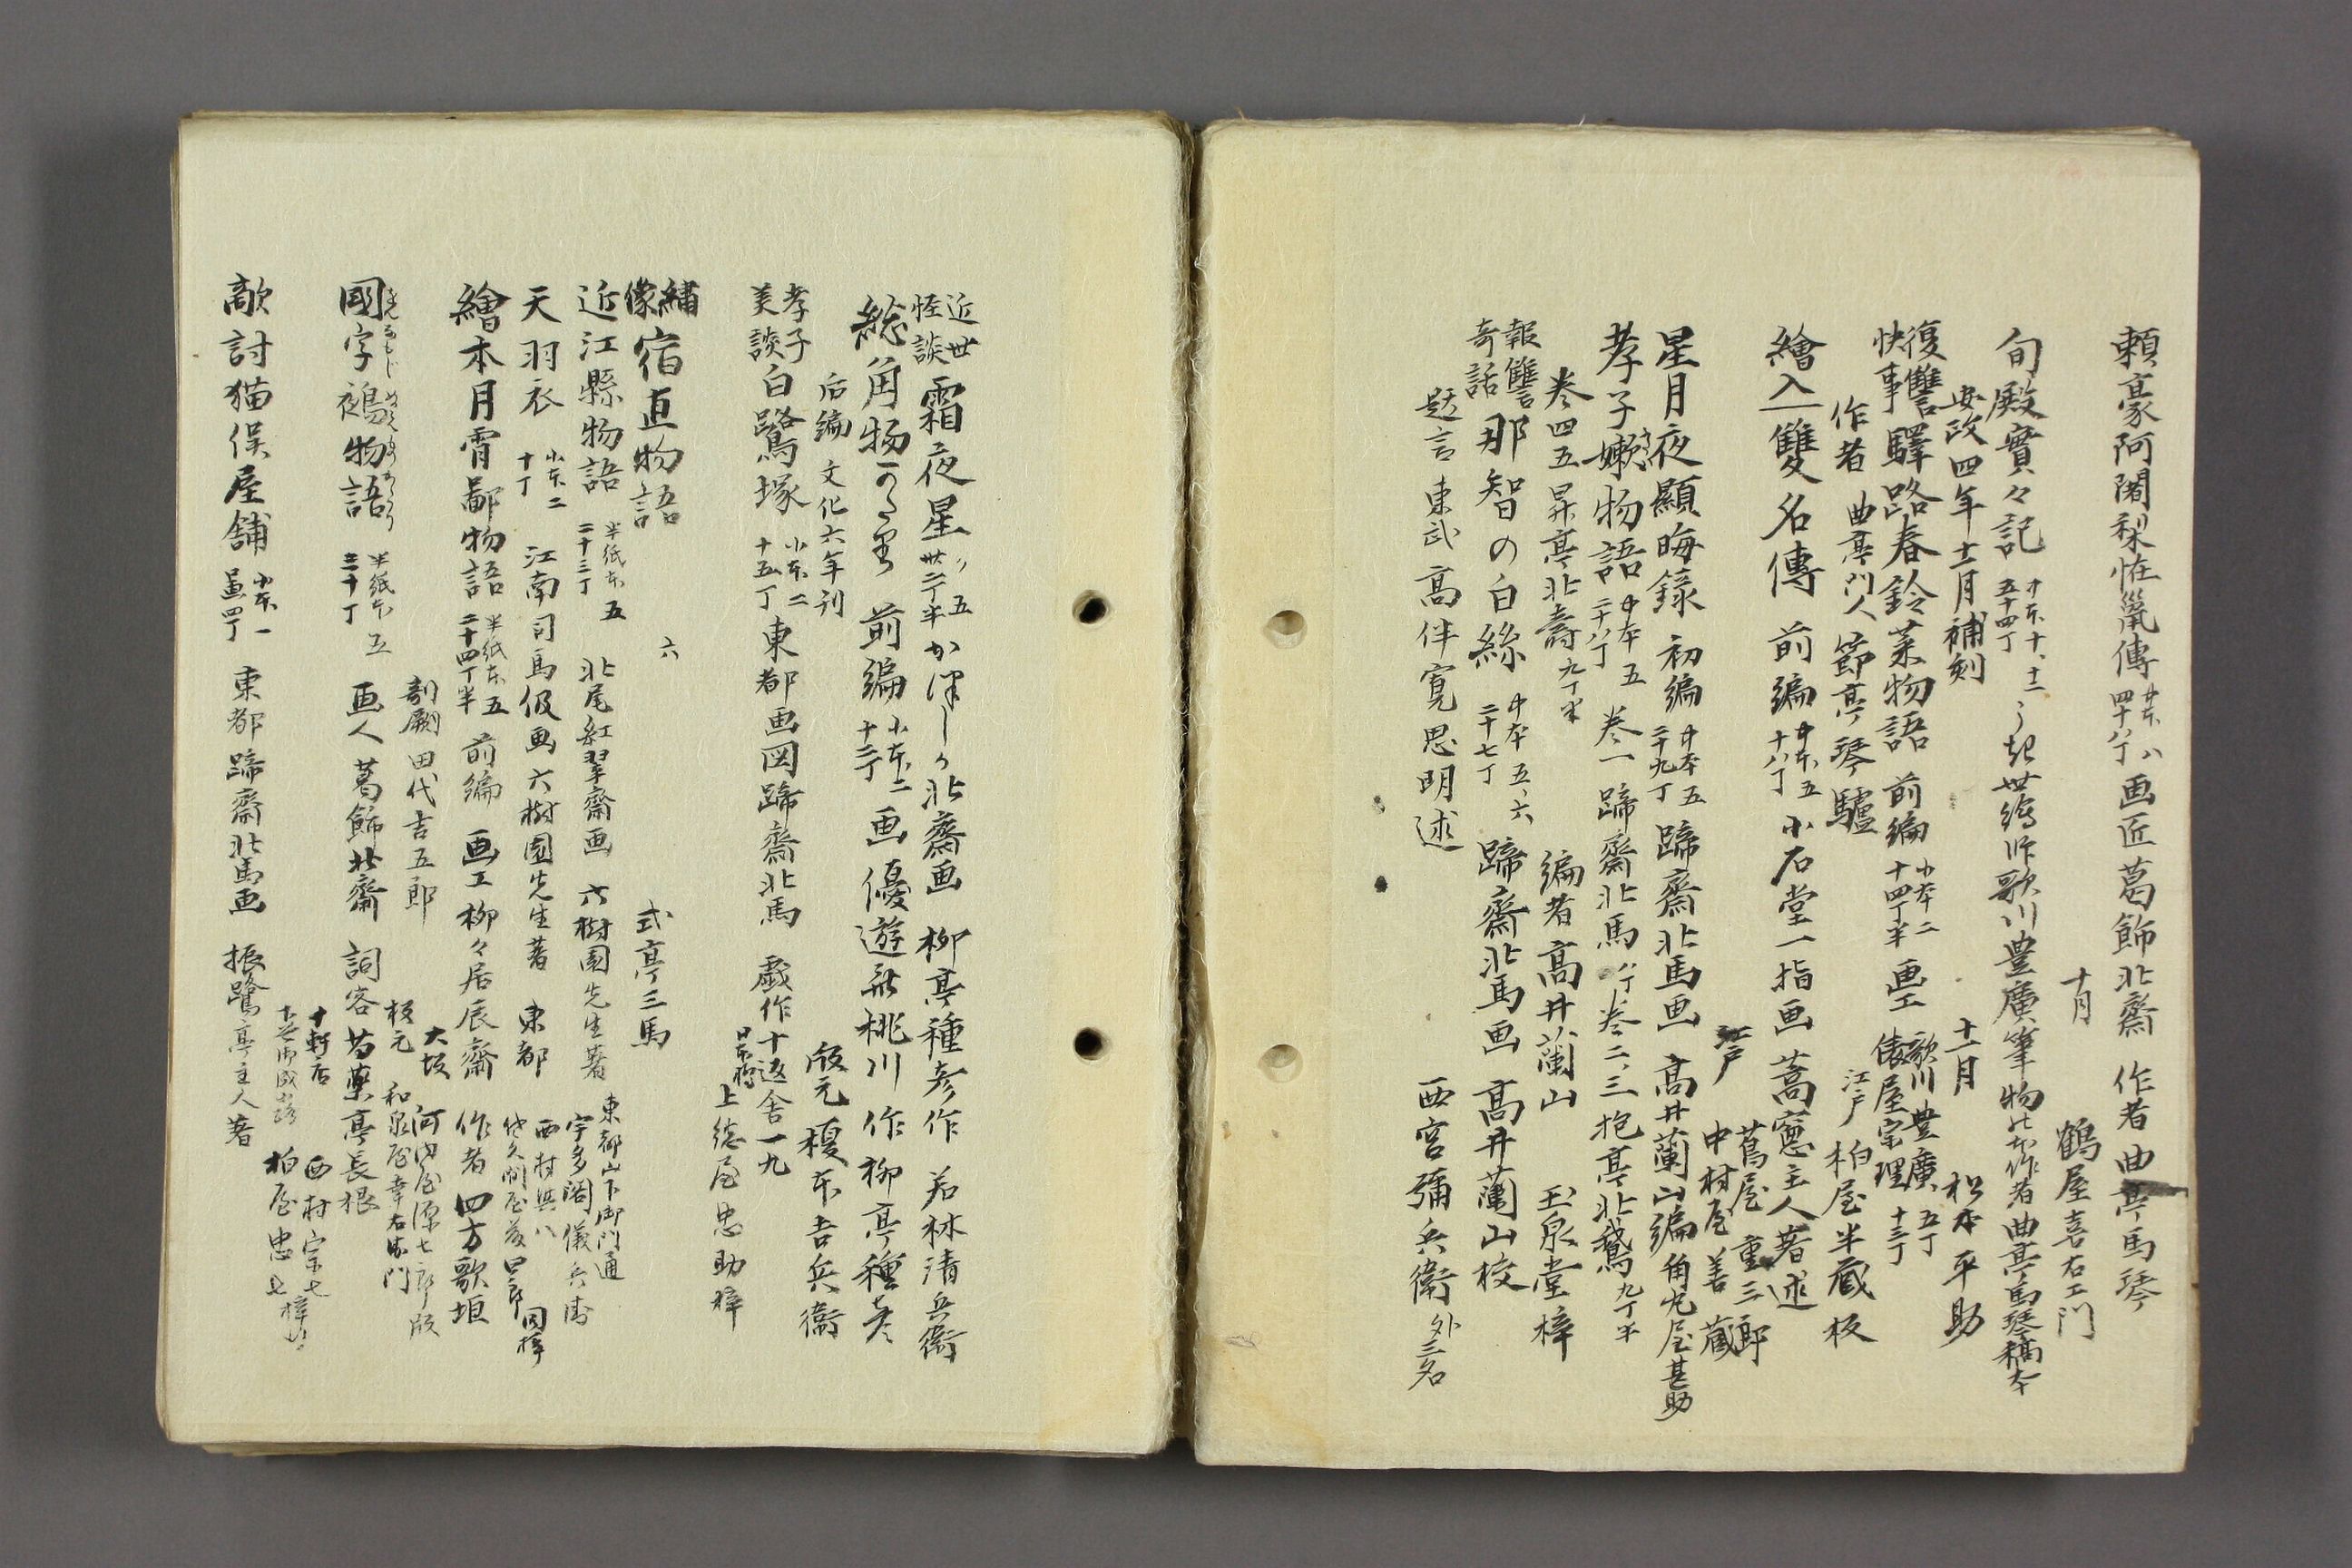 頼豪阿闍梨恠鼠傳 中本八 四十八丁 画匠葛飾北齋 作者曲亭馬琴
十月 鶴屋喜右エ門
旬殿實々記 中本十、十二 五十四丁 歌川豊廣筆 作者曲亭馬琴稿本
安政四年十二月補刻 十一月 松本平助
復讐快事驛路春鈴菜物語 前編 小本二 十四丁半 画工 歌川豊廣 五丁 俵屋宗理 十三丁
作者 曲亭門人 節亭琴驢 江戸 柏屋半蔵板
繪入雙名傳 前編 中本五 十八丁 小石堂一指画 蒿窓主人著述
江戸 蔦屋重三郎 中村屋善蔵
星月夜顯晦録 初編 中本五 二十九丁 蹄齋北馬画 高井蘭山編 角丸屋甚助
孝子嫩物語 中本五 二十八丁 巻一 蹄齋北馬 八丁 巻二、三 抱亭北鵞 九丁半
巻四五 昇亭北壽 九丁半 編者高井蘭山 玉泉堂梓
報讐奇話那智の白絲 中本五、六 二十七丁 蹄齋北馬画 高井蘭山校
題言東武高伴寛思明述 西宮彌兵衛 外三名
近世怪談霜夜星 五 廿二丁半 かつしか北齋画 柳亭種彦作 若林清兵衛
総角物かたり 前編 小本二 十二丁 画 優遊斎桃川 作柳亭種彦
后編 文化六年刊 版元 榎本吉兵衛
孝子美談白鷺塚 小本二 十五丁 東都画図蹄齋北馬 戯作十返舎一九
日本橋 上総屋忠助梓
繍像宿直物語 六 式亭三馬
近江縣物語 半紙本五 二十三丁 北尾紅翠齋画 六樹園先生著 東都山下御門通 宇多閣儀兵衛
天羽衣 小本二 十丁 江南司馬伋画 六樹園先生著 東都 西村與八 同梓
繪本月宵鄙物語 半紙本五 二十四丁半 前編 画工柳々居辰齋 作者四方歌垣
剞劂田代吉五郎 大坂 河内屋源七郎版 板元 和泉屋幸右衛門
國字鵺物語 半紙本五 三十丁 画人葛飾北齋 詞客芍藥亭長根
十軒店 西村宗七 柏屋忠七梓
敵討猫俣屋舗 小本一 東都蹄齋北馬画 振鷺亭主人著